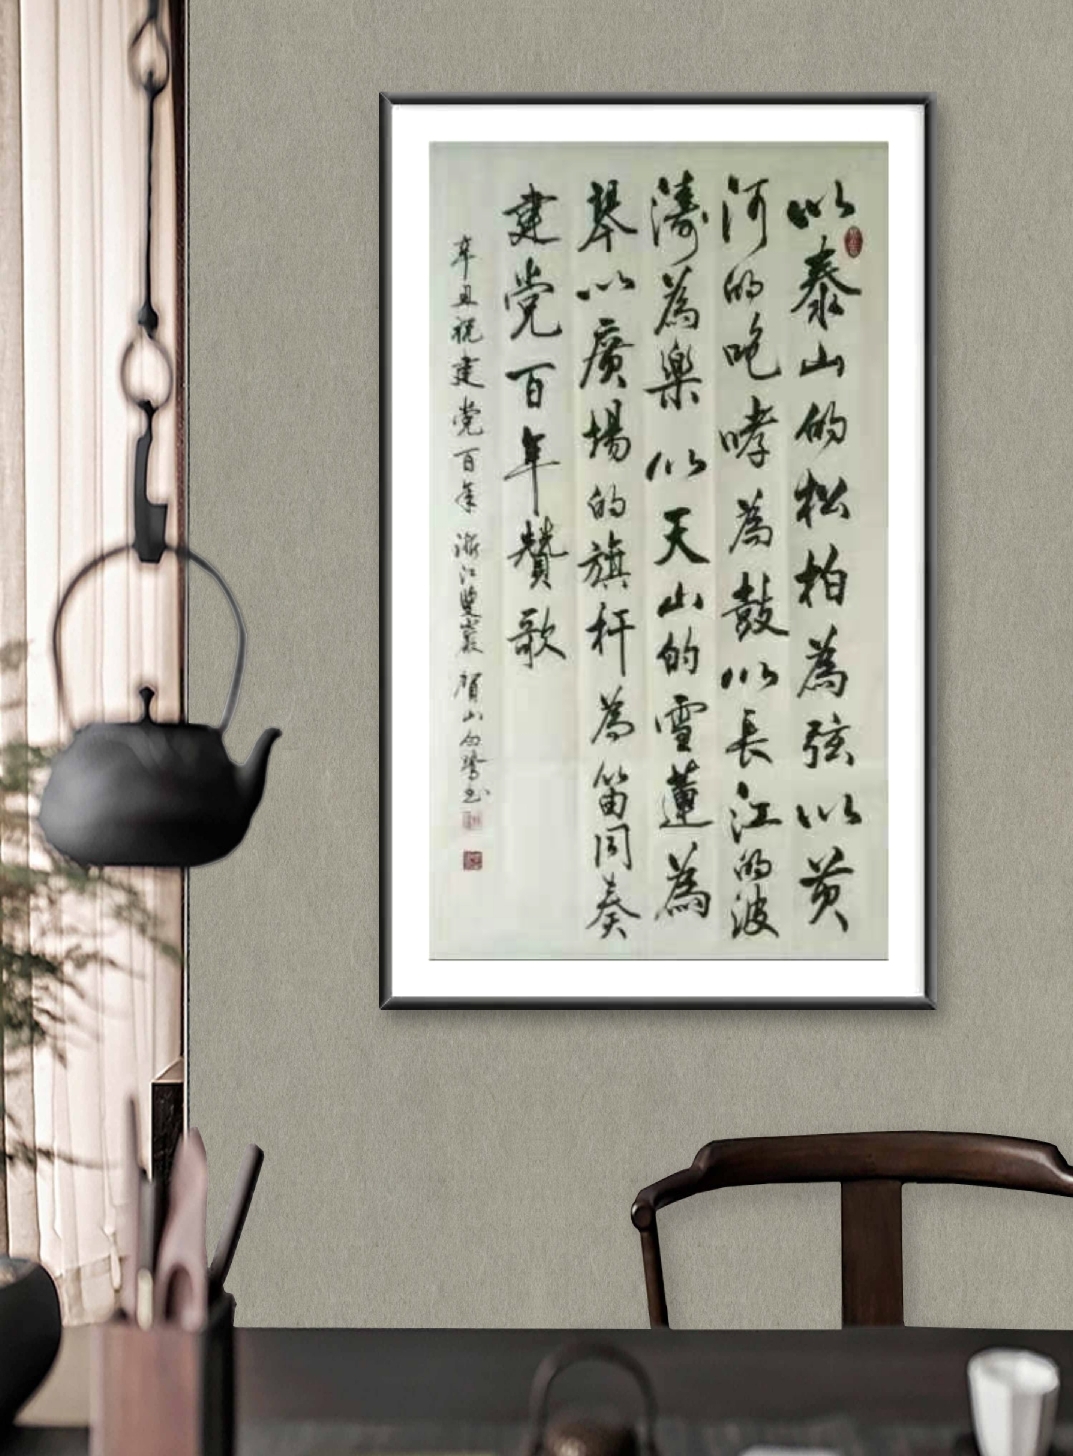 以泰山的松柏為弦以黄
河的咆哮為鼓以長江的波
濤為樂以天山的雪蓮為
琴以廣場的旗杆為笛同奏
建党百年贊歌
辛丑祝建党百年浙江雙巖賀山向書